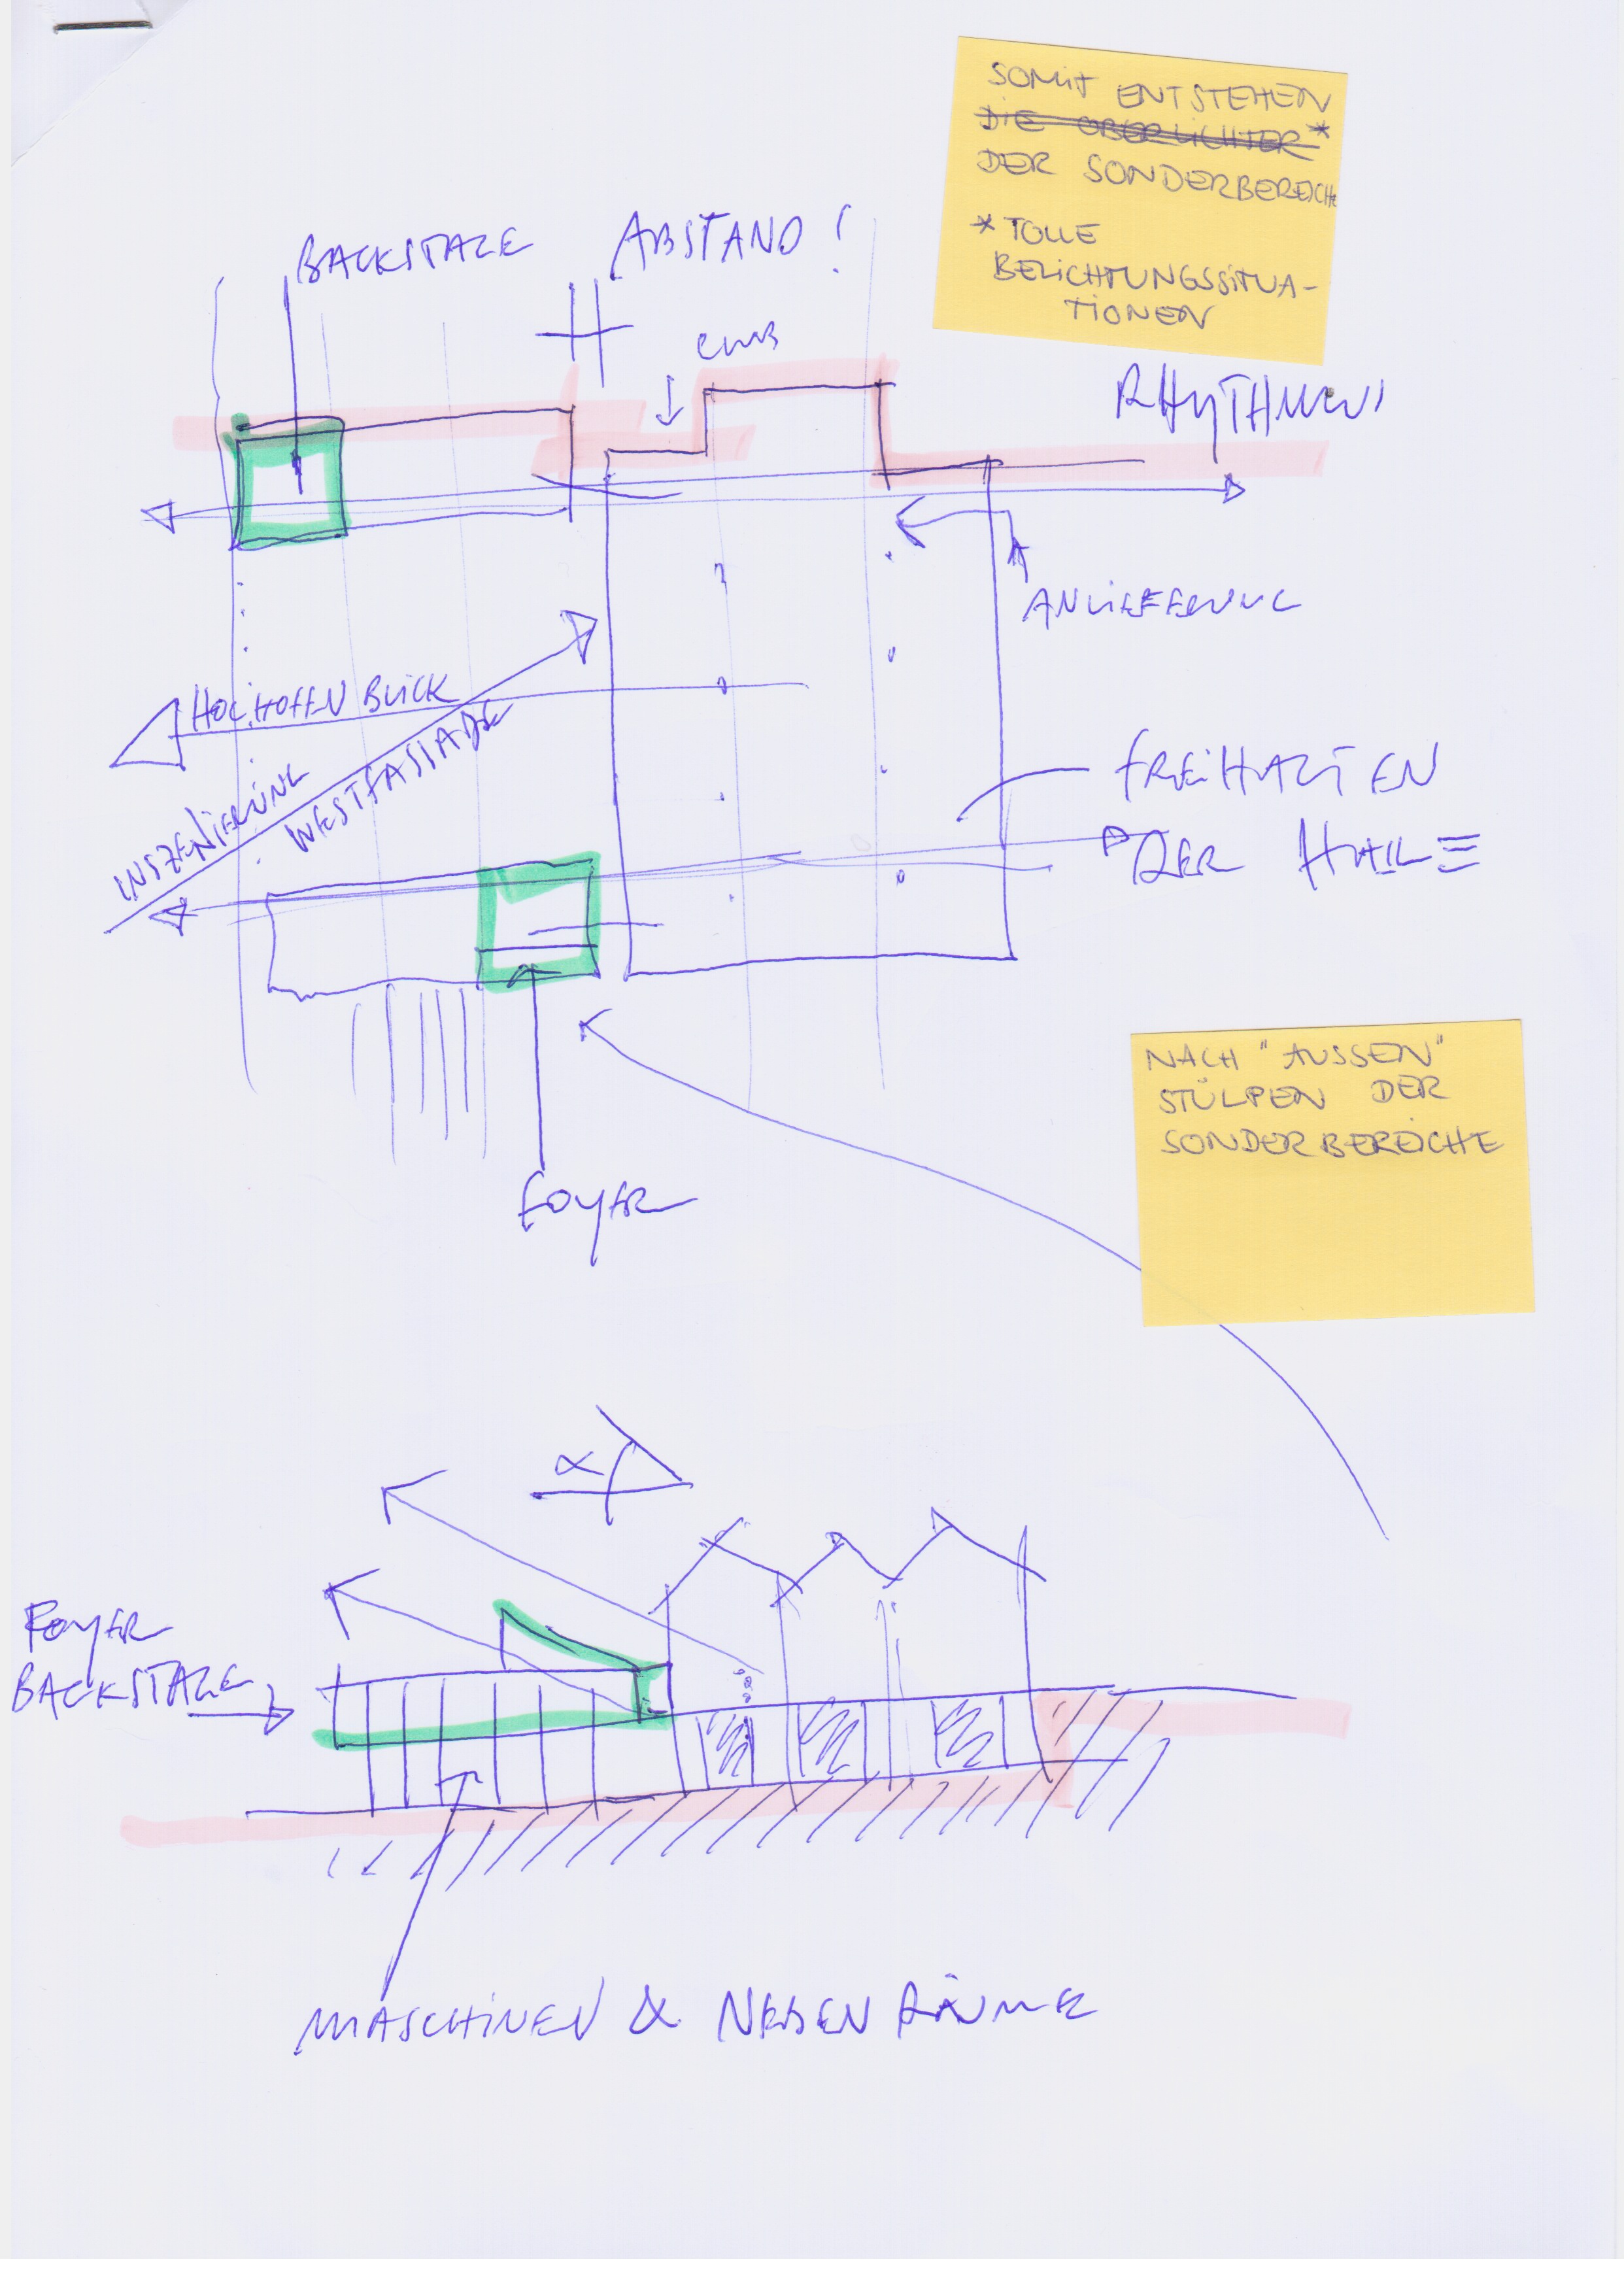 SOMIT ENTSTEHEN
DIE OBERLICHTER *
DER SONDERBEREICHE
* TOLLE
BELICHTUNGSSITUA-
TIONEN
BACKSTAGE
ABSTAND !
RHYTHMUS
ANLIEFERUNG
HOCHOFEN BLICK
INSZENIERUNG
WESTFASSADE
FREIHALTEN
DER HALLE
FOYER
NACH "AUSSEN"
STÜLPEN DER
SONDERBEREICHE
α
FOYER
BACKSTAGE
MASCHINEN & NEBENRÄUME